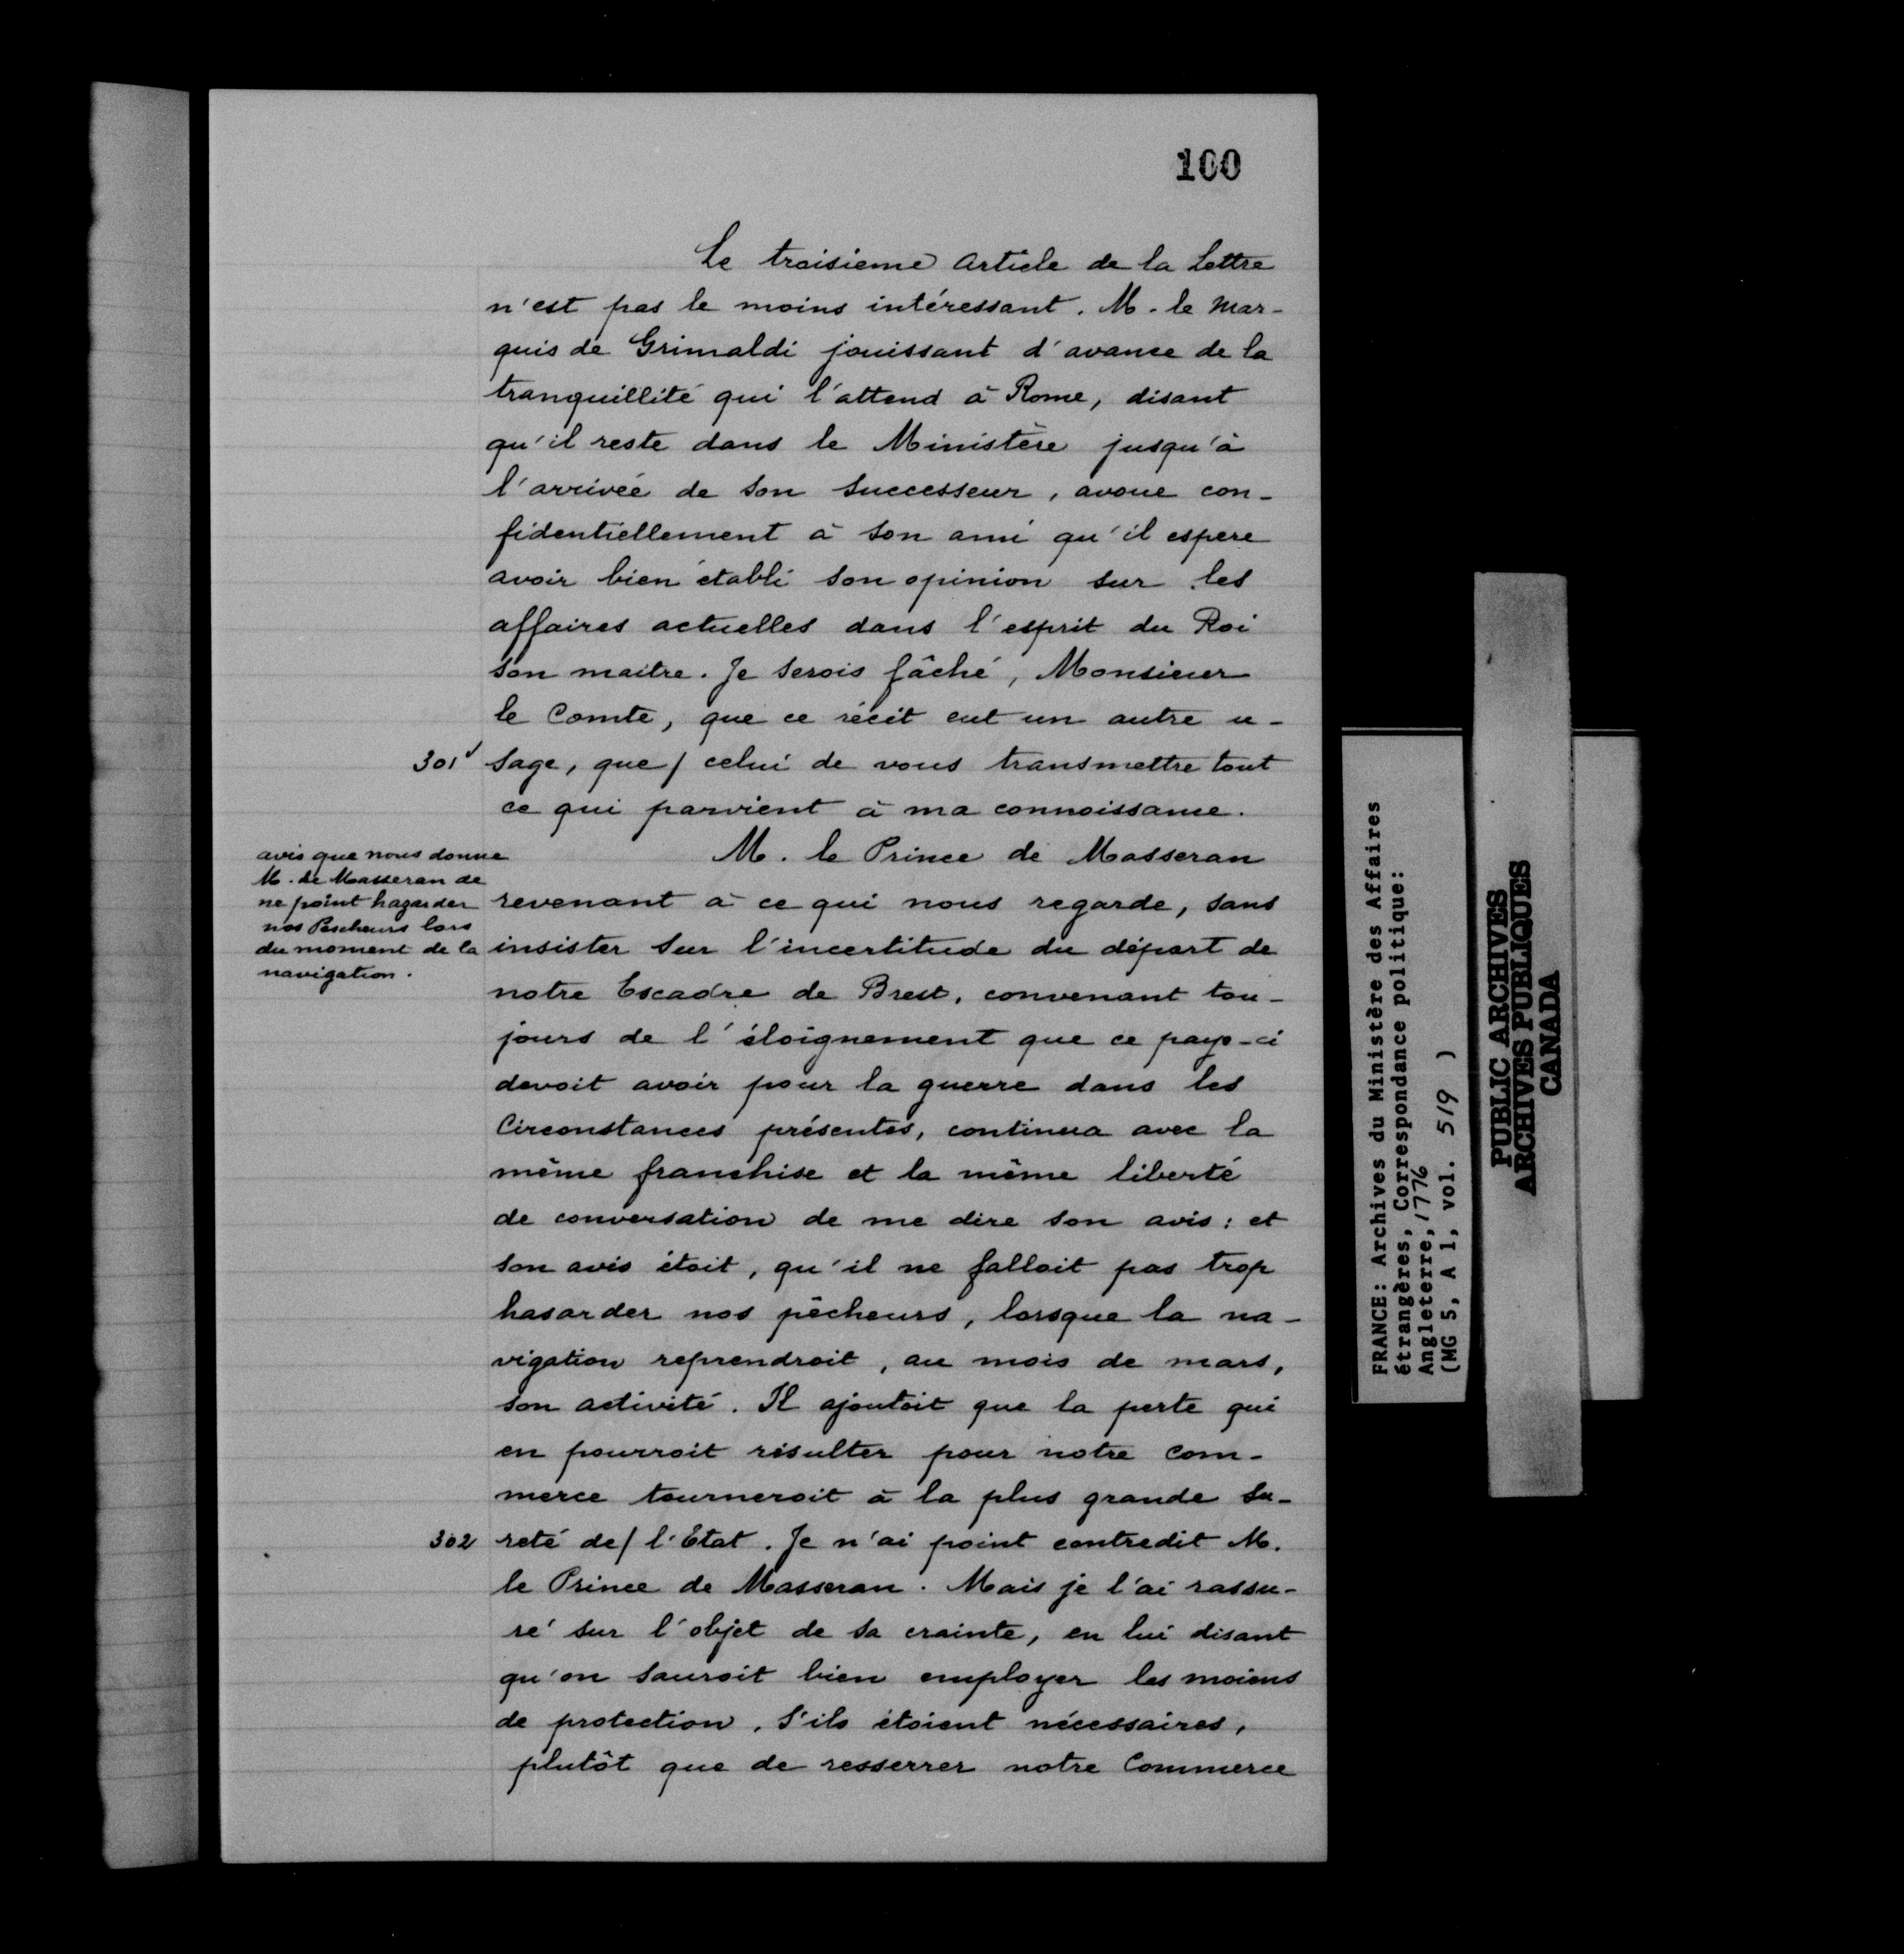 100
Le troisieme article de la Lettre
n'est pas le moins intéressant. M. le Mar-
quis de Grimaldi jouissant d'avance de la
tranquillité qui l'attend à Rome, disant
qu'il reste dans le Ministère jusqu'à
l'arrivée de son successeur, avoue con-
fidentiellement à son ami qu'il espere
avoir bien établi son opinion sur les
affaires actuelles dans l'esprit du Roi
son maitre. Je serois fâché, Monsieur
le Comte, que ce récit eut un autre u-
301v sage, que / celui de vous transmettre tout
ce qui parvient à ma connoissance.
avis que nous donne
M. de Masseran de
ne point hazarder
nos Pescheurs lors
du moment de la
navigation.
M. le Prince de Masseran
revenant à ce qui nous regarde, sans
insister sur l'incertitude du départ de
notre Escadre de Brest, convenant tou-
jours de l'éloignement que ce pays-ci
devoit avoir pour la guerre dans les
Circonstances présentes, continua avec la
même franchise et la même liberté
de conversation de me dire son avis : et
son avis étoit, qu'il ne falloit pas trop
hasarder nos pêcheurs, lorsque la na-
vigation reprendroit, au mois de mars,
son activité. Il ajoutoit que la perte qui
en pourroit résulter pour notre com-
merce tourneroit à la plus grande su-
302 reté de / l'Etat. Je n'ai point contredit M.
le Prince de Masseran. Mais je l'ai rassu-
ré sur l'objet de sa crainte, en lui disant
qu'on sauroit bien employer les moiens
de protection, s'ils étoient nécessaires,
plutôt que de resserrer notre Commerce
FRANCE: Archives du Ministère des Affaires
étrangères, Correspondance politique:
Angleterre, 1776
(MG 5, A 1, vol. 519 )
PUBLIC ARCHIVES
ARCHIVES PUBLIQUES
CANADA